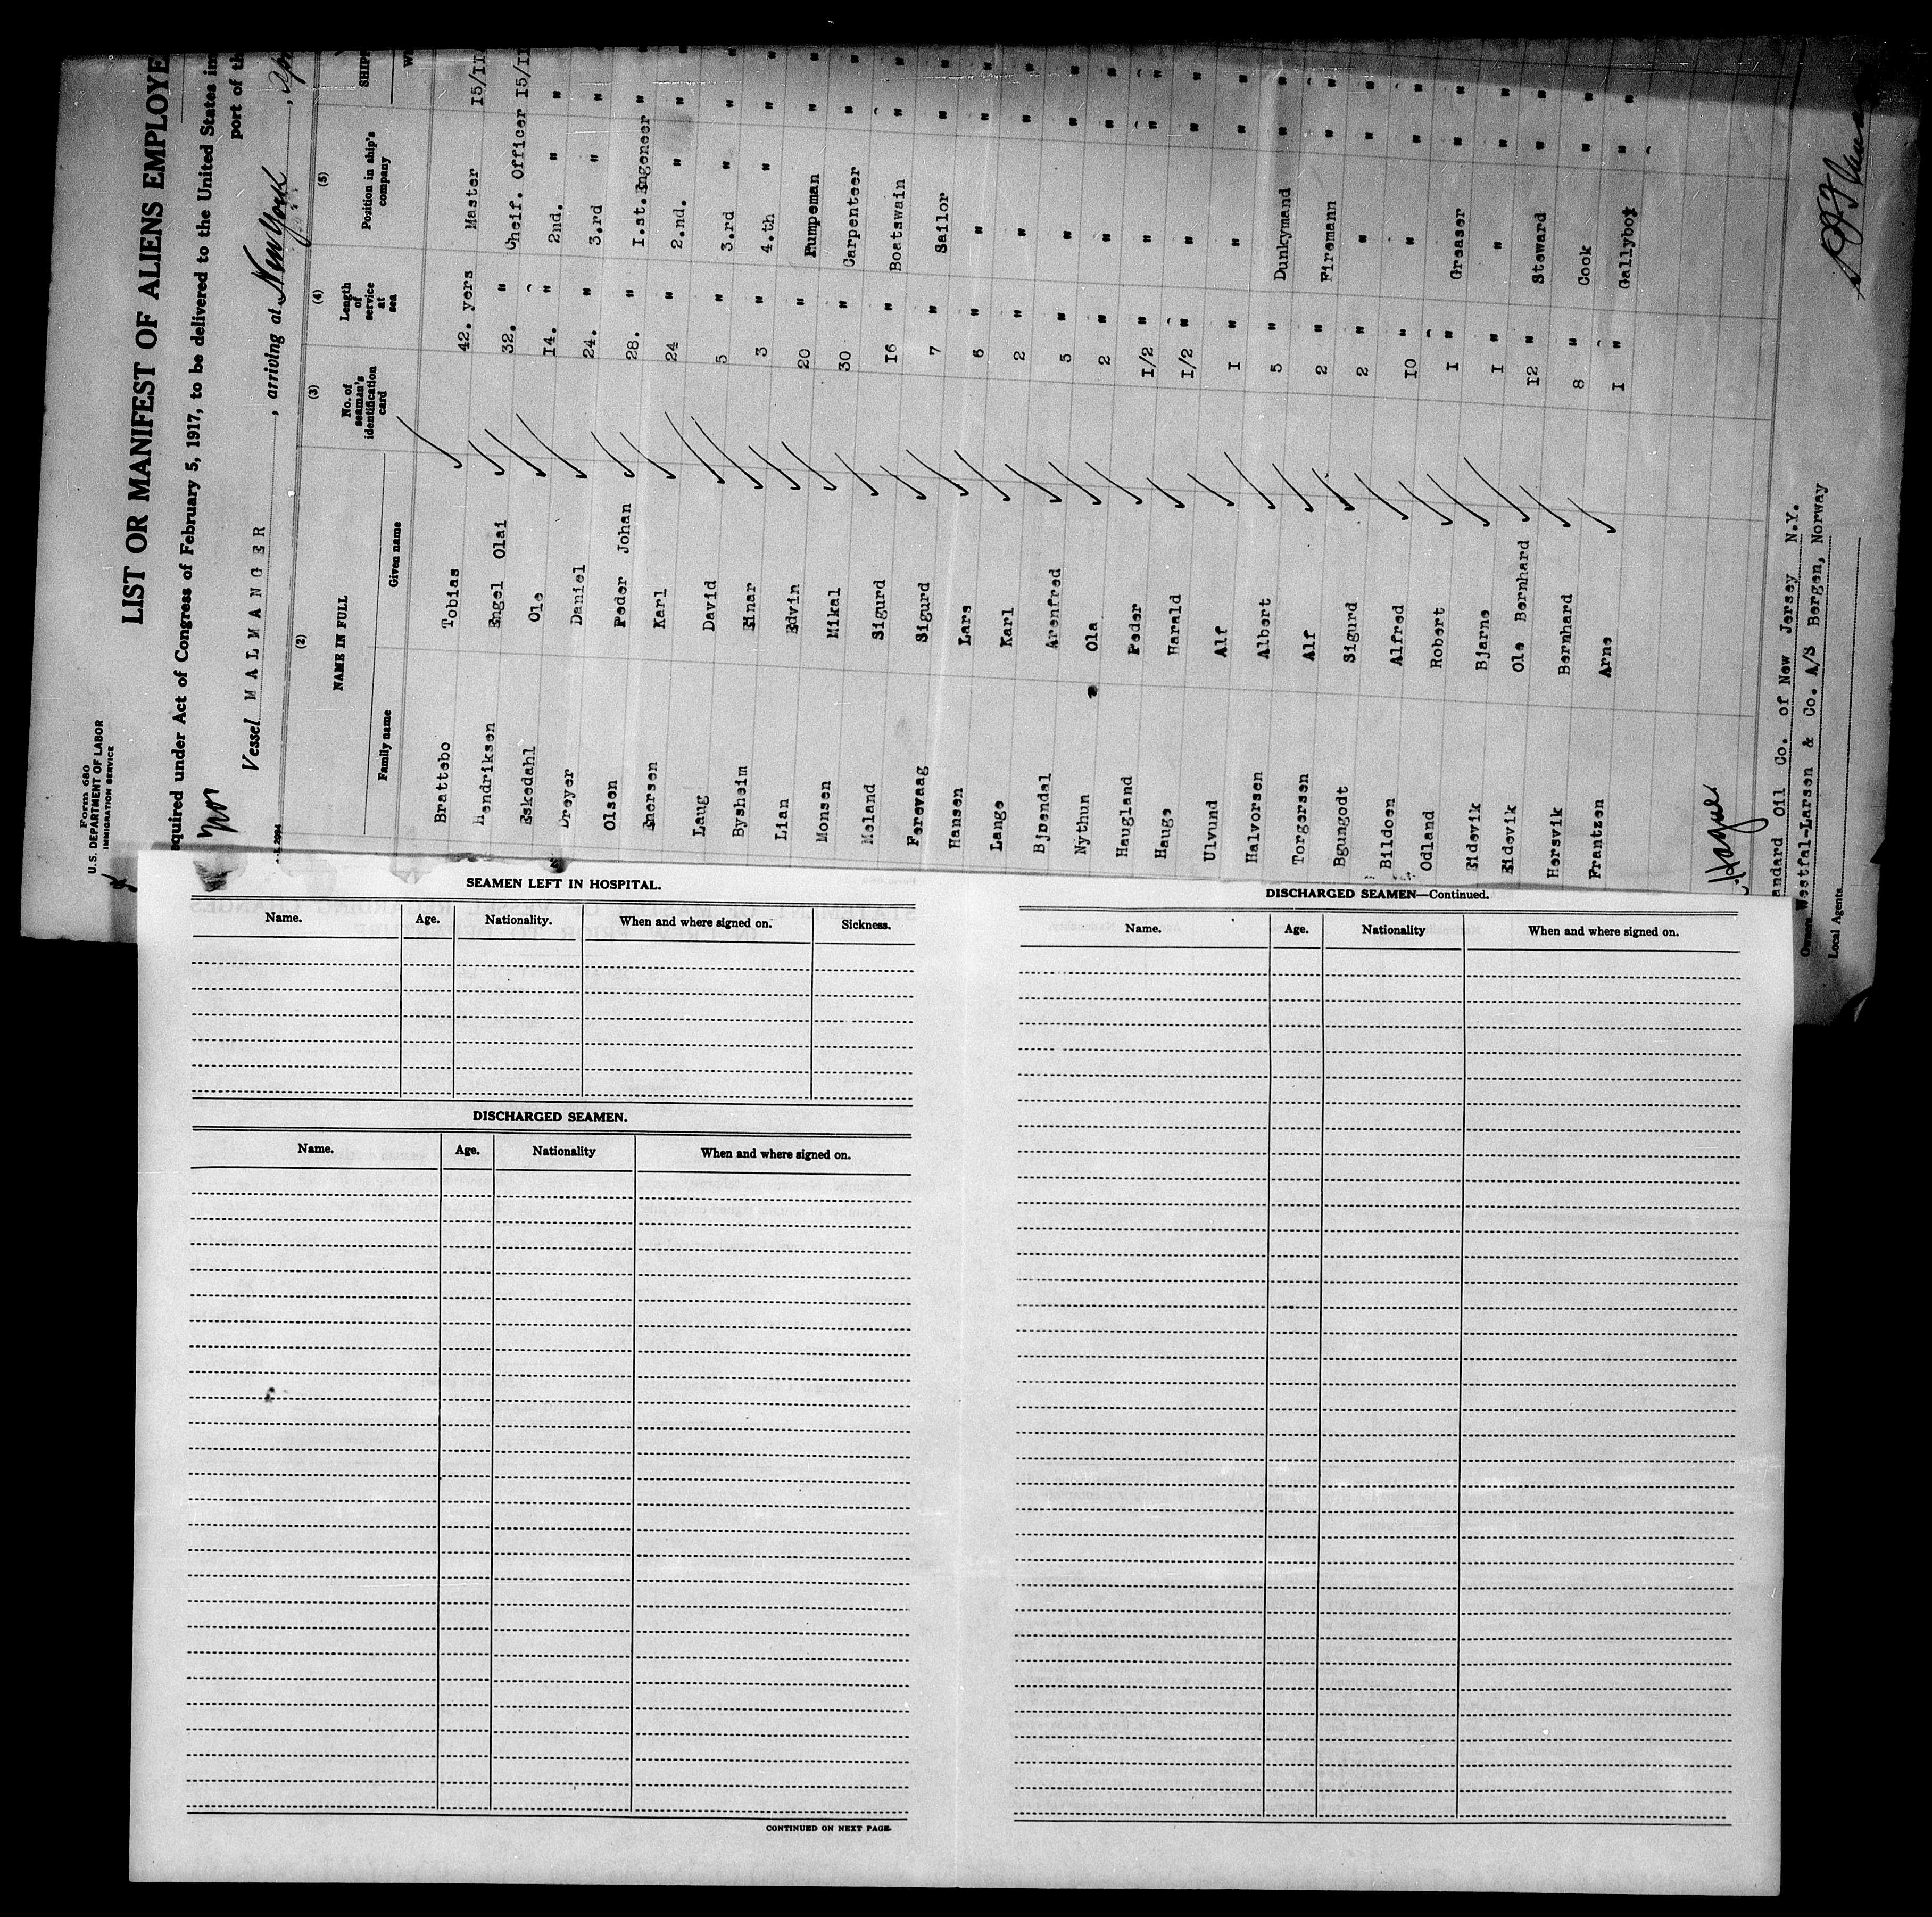 Form 680
U.S. DEPARTMENT OF LABOR
IMMIGRATION SERVICE
LIST OR MANIFEST OF ALIENS EMPLOYE
equired under Act of Congress of February 5, 1917, to be delivered to the United States im
port of th
Vessel MALMANGER, arriving at New York
(2) (3) (4) (5)
NAME IN FULL
Family name Given name
No. of seaman's identification card
Length of service at sea
Position in ship's company
SHIP
W
Brattebo Tobias 42. yers Master 15/II
Hendriksen Engel Olai 32. " Cheif. Officer 15/II
Eskedahl Ole 14. " 2nd. " "
Dreyer Daniel 24. " 3.rd " " "
Olsen Peder Johan 28. " I.st.Engeneer " "
Enersen Karl 24 " 2.nd. " " "
Laug David 5 " 3.rd " " "
Bysheim Einar 3 " 4.th " " "
Lian Edvin 20 " Pumpeman " "
Monsen Mikal 30 " Carpenteer " "
Meland Sigurd 16 " Boatswain " "
Ferevaag Sigurd 7 " Sailor " "
Hansen Lars 6 " " " "
Lange Karl 2 " " " "
Bjøendal Arenfred 5 " " " "
Nythun Ola 2 " " " "
Haugland Peder I/2 " " " "
Hauge Harald I/2 " " " "
Ulvund Alf I " " " "
Halvorsen Albert 5 " Dunkymand " "
Torgersen Alf 2 " Firemann " "
Bgungodt Sigurd 2 " " " "
Bildoen Alfred 10 " " " "
Odland Robert I " Greaser " "
Eidevik Bjarne I " " " "
Eidevik Ole Bernhard 12 " Steward " "
Hersvik Bernhard 8 " Cook " "
Frantsen Arne I " Gallyboy " "
andard Oil Co. of New Jersey N.Y.
Owners Westfal-Larsen & Co. A/S Bergen, Norway
Local Agents
SEAMEN LEFT IN HOSPITAL.
Name. Age. Nationality. When and where signed on. Sickness.
DISCHARGED SEAMEN.
Name. Age. Nationality When and where signed on.
CONTINUED ON NEXT PAGE.
DISCHARGED SEAMEN—Continued.
Name. Age. Nationality When and where signed on.